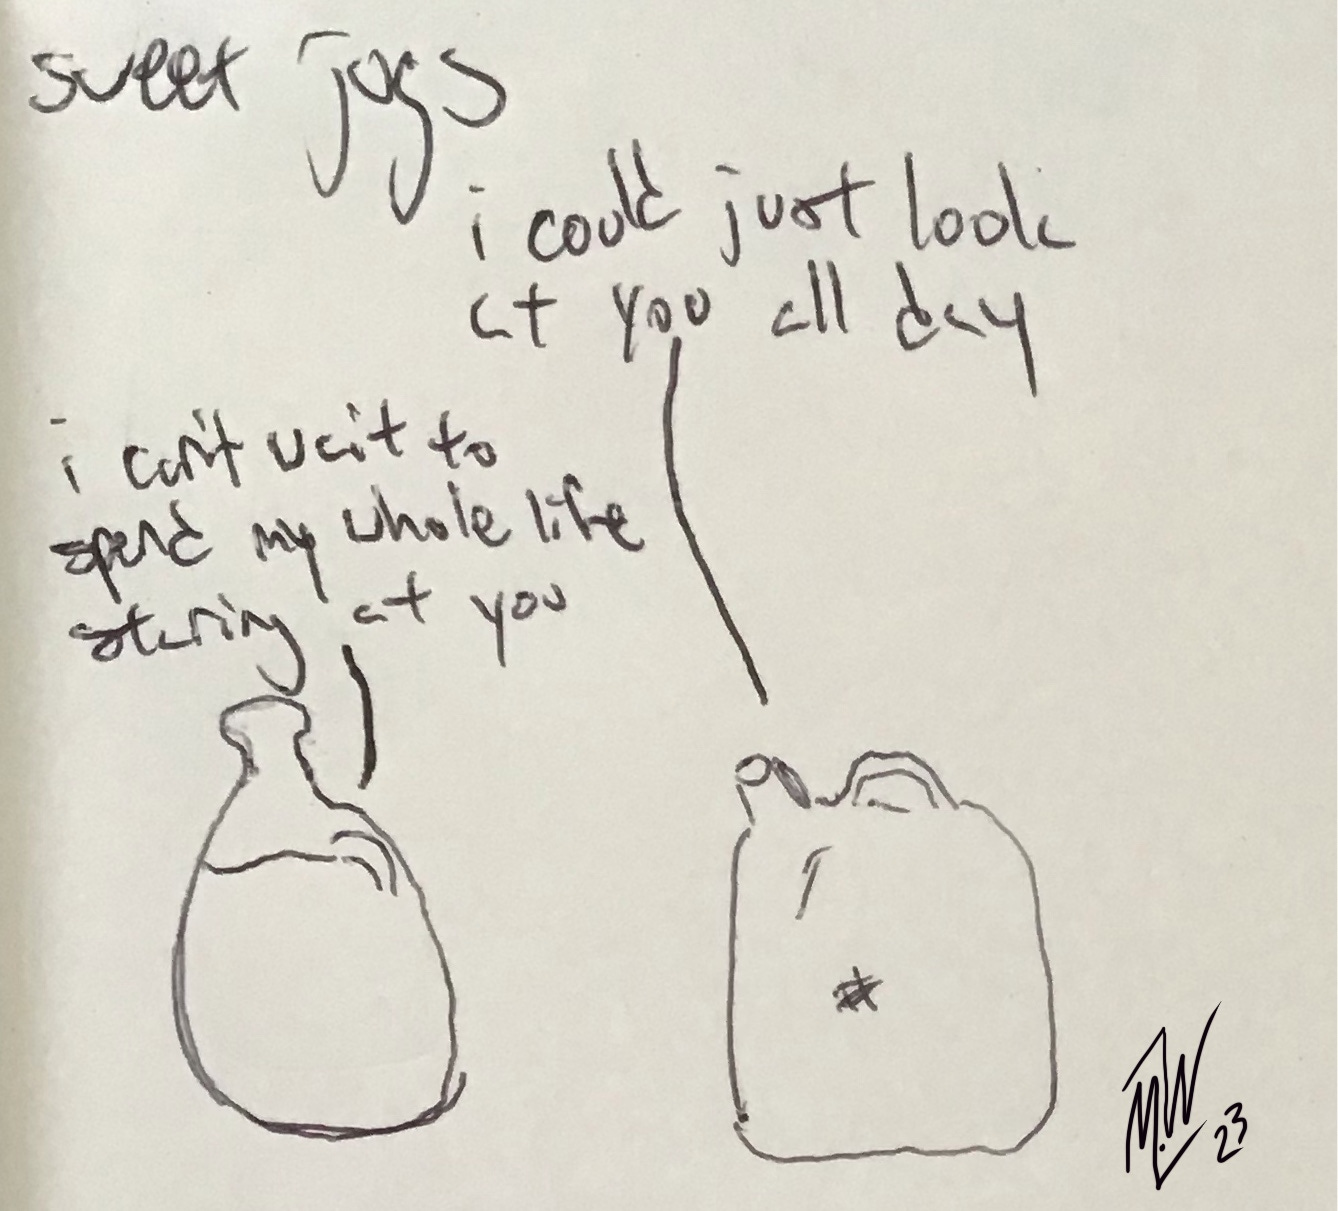 sweet jugs
i could just look
at you all day
i can't wait to
spend my whole life
staring at you
M.W
23